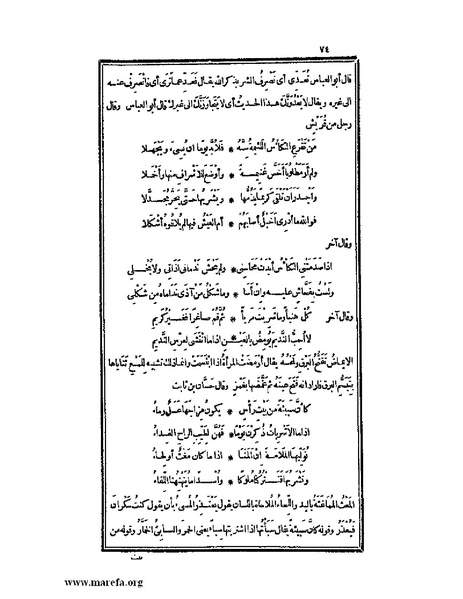 ٧٤
قال أبو العباس فعدّى أى نصرف الشر بذكر الله يقال فعدّ عما ترى أى فانصرف عنه
الى غيره ويقال لا يعدونّك هذا الحديث أى لا يتجاوزنّك الى غيرك قال أبو العباس وقال
رجل من قريش
من تقرع الكأس اللئيمة سنّه * فلا بدّ يوما ان يسىء ويجهلا
ولم أر مطلوبا أخسّ غنيمة * وأوضع للأشراف منها وأخملا
وأجدر أن تلقى كريما يذمّها * ويشربها حتى يخرّ مجدّلا
فوالله ما أدرى أخبل أصابهم * أم العيش فيها لم يلاقوه أشكلا
وقال آخر
اذا صدمتنى الكأس أبدت محاسنى * ولم يخش ندمانى أذاتى ولا بخلى
ولست بفحاش عليه وان أسا * وما شكل من آذى نداماه من شكلى
وقال آخر كل هنيأ وما شربت مريأ * ثم قم صاغرا فغير كريم
لا أحب النديم يومض بالعين * اذا ما انتشى لعرس النديم
الايماض تفتح البرق ولمحه يقال أومضت المرأة اذا ابتسمت وانما ذلك تشبيه للمع ثناياها
بتبسم البرق فاراد انه فتح عينه ثم غمضها بغمز وقال حسان بن ثابت
كأنّ سبيئة من بيت رأس * يكون مزاجها عسل وماء
اذا ما الأشربات ذكرن يوما * فهنّ لطيب الراح الفداء
نولّيها الملامة ان ألمنا * اذا ما كان مغث أو لحاء
ونشربها فتتركنا ملوكا * وأسدا ما ينهنهنا اللقاء
المغث المماغثة باليد واللحاء الملاحاة باللسان يقول يعتذر المسىء بأن يقول كنت سكران
فيعذر وقوله كأن سبيئة يقال سبأتها اذا اشتريتها سباء يعنى الخمر والسابئ الخمار وقوله من
بيت
www.marefa.org